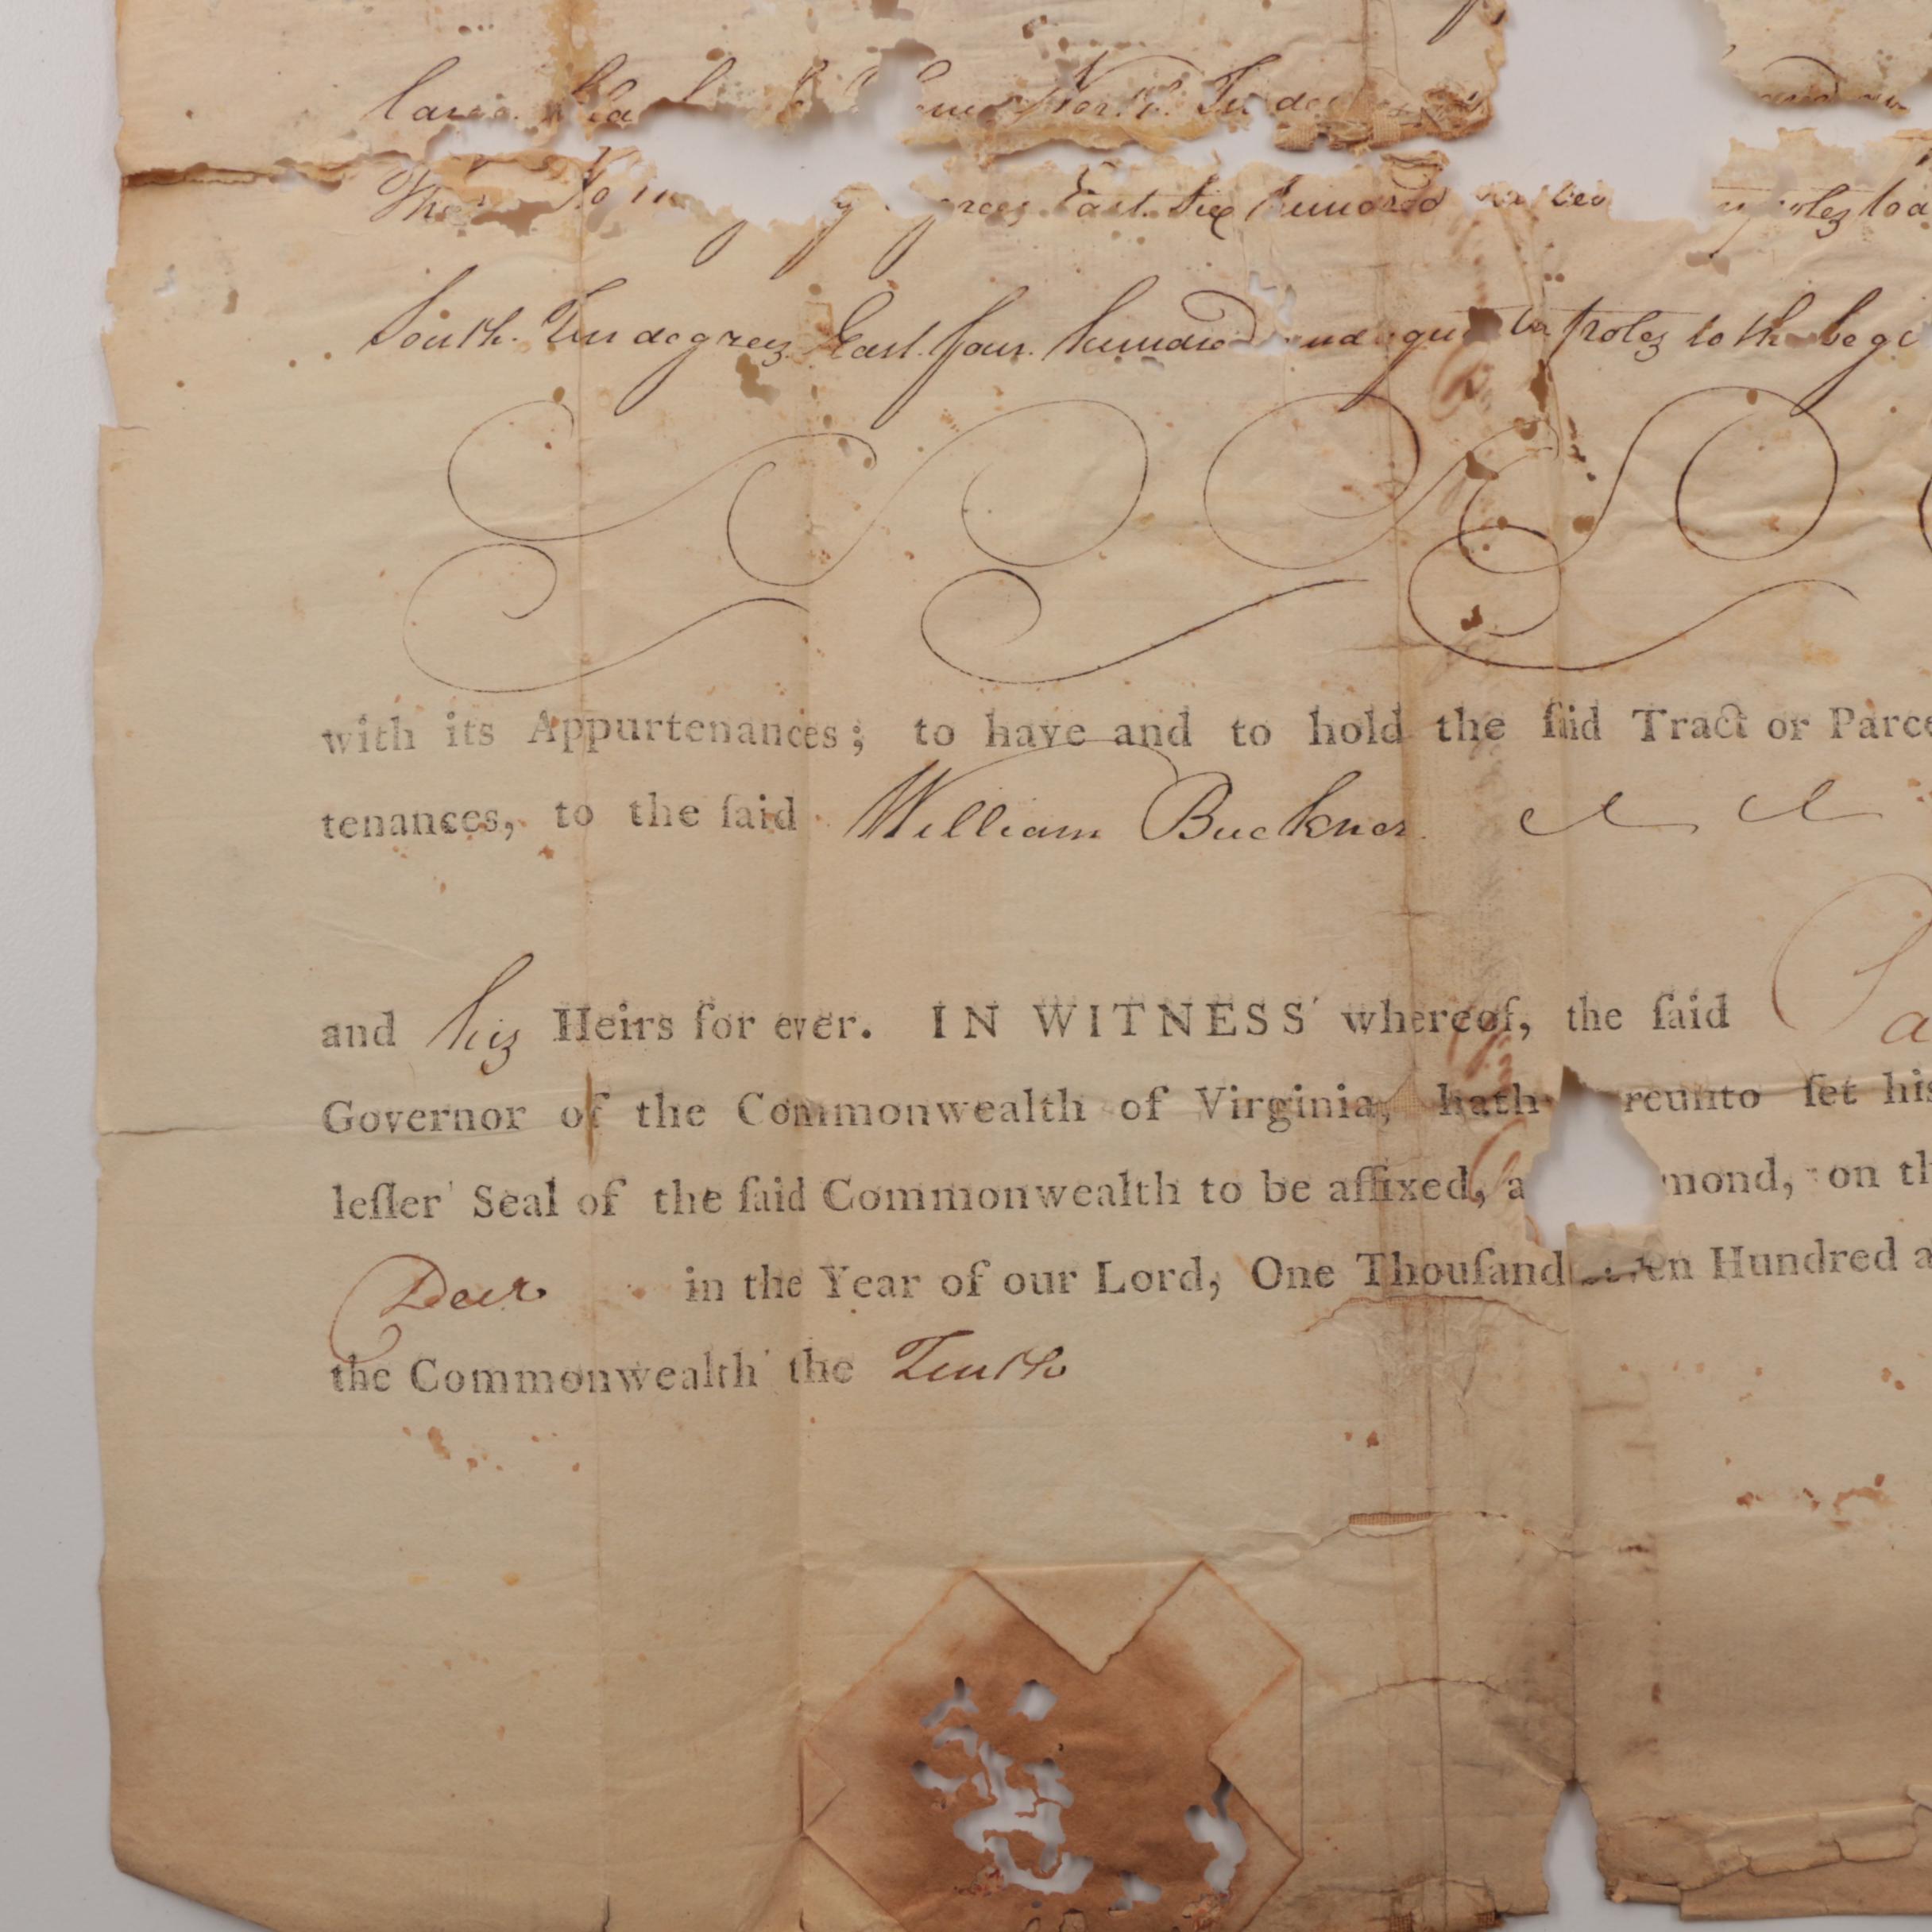 North. Ten
East. Six hundred
South. Ten degrees East. four. hundred and to the
with its Appurtenances; to have and to hold the ſaid Tract or Parce
tenances, to the ſaid William Buckner
and his Heirs for ever. IN WITNESS whereof, the ſaid
Governor of the Commonwealth of Virginia, hath reunto ſet his
leſſer Seal of the ſaid Commonwealth to be affixed, a mond, on th
Decr in the Year of our Lord, One Thouſand en Hundred a
the Commonwealth the Tenth